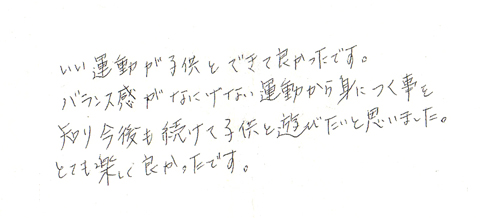 いい運動が子供とできて良かったです。
バランス感がなにげない運動から身につく事を
知り今後も続けて子供と遊びたいと思いました。
とても楽しく良かったです。